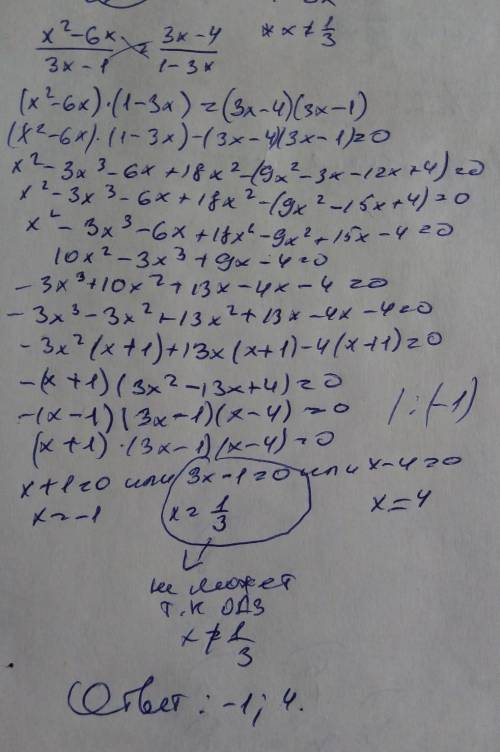 x²-6x / 3x-1 = 3x-4 / 1-3x  * x ≠ 1/3
(x²-6x)·(1-3x) = (3x-4)(3x-1)
(x²-6x)·(1-3x)-(3x-4)(3x-1)=0
x²-3x³-6x+18x²-(9x²-3x-12x+4)=0
x²-3x³-6x+18x²-(9x²-15x+4)=0
x²-3x³-6x+18x²-9x²+15x-4=0
10x²-3x³+9x-4=0
-3x³+10x²+13x-4x-4=0
-3x³-3x²+13x²+13x-4x-4=0
-3x²(x+1)+13x(x+1)-4(x+1)=0
-(x+1)(3x²-13x+4)=0
-(x-1)(3x-1)(x-4)=0 /:(-1)
(x+1)·(3x-1)(x-4)=0
x+1=0 или 3x-1=0 или x-4=0
x=-1 x=1/3 x=4
не может
т.к ОДЗ
x≠1/3
Ответ: -1; 4.